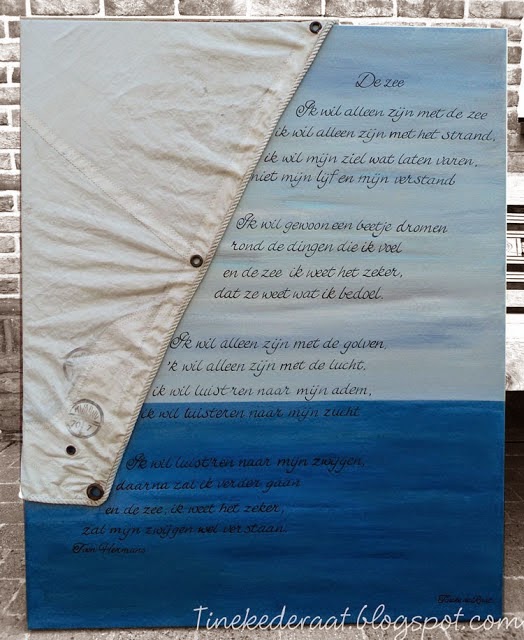 De zee
Ik wil alleen zijn met de zee
ik wil alleen zijn met het strand,
ik wil mijn ziel wat laten varen,
niet mijn lijf en mijn verstand
Ik wil gewoon een beetje dromen
rond de dingen die ik voel
en de zee ik weet het zeker,
dat ze weet wat ik bedoel.
Ik wil alleen zijn met de golven,
'k wil alleen zijn met de lucht.
ik wil luist'ren naar mijn adem,
ik wil luisteren naar mijn zucht
Ik wil luist'ren naar mijn zwijgen,
daarna zal ik verder gaan
en de zee, ik weet het zeker,
zal mijn zwijgen wel verstaan.
Hermans
Tinekederaat.blogspot.com